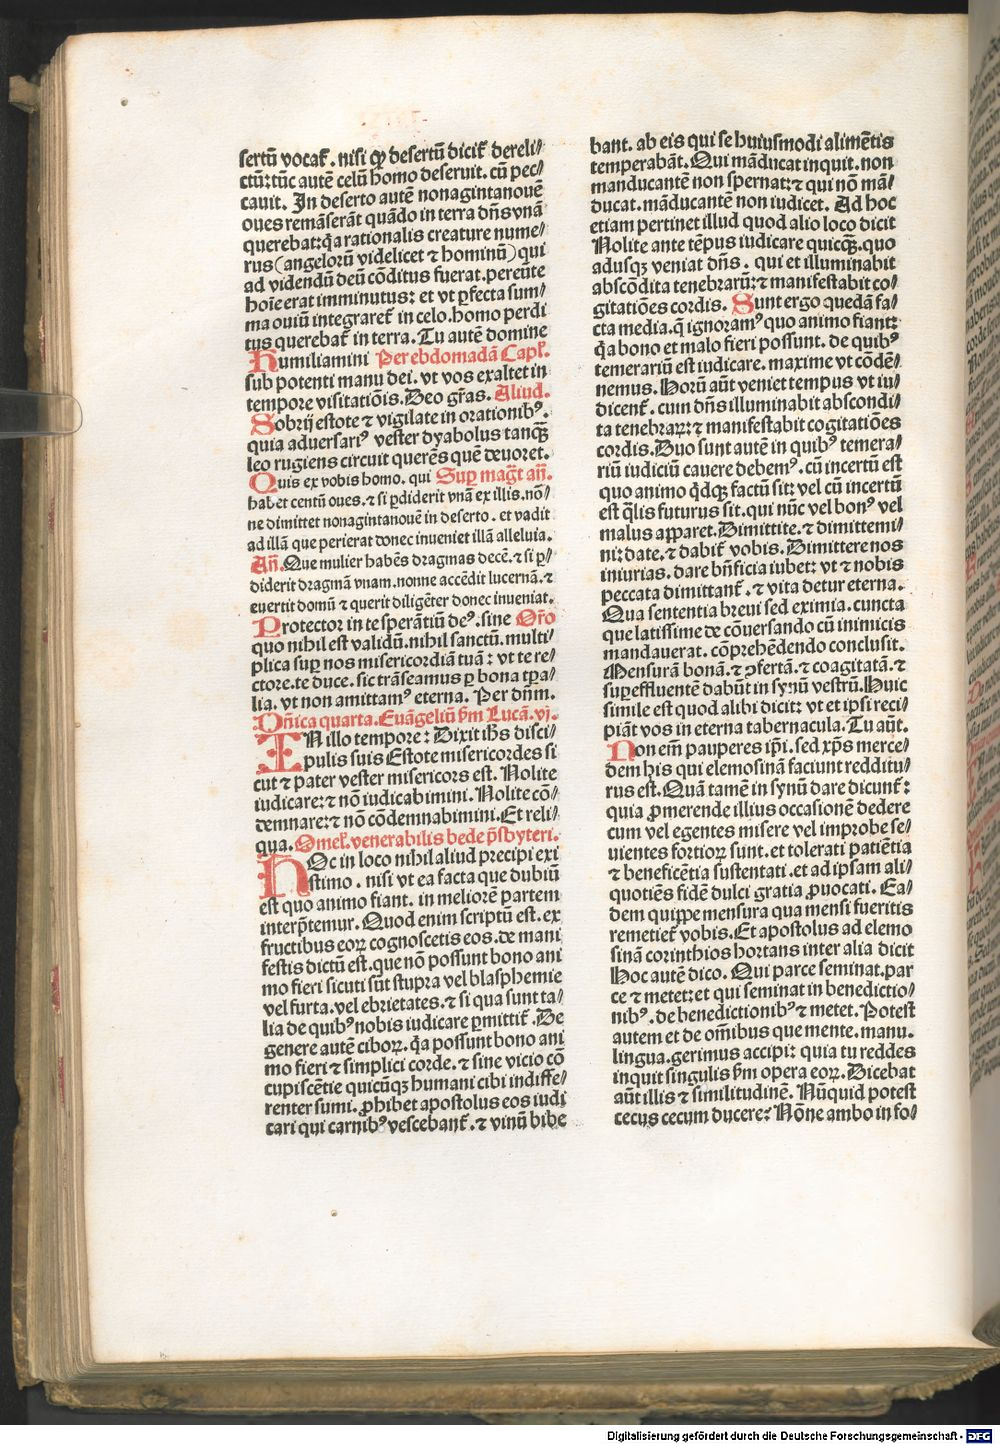 sertū vocat᷑. nisi ꝙ desertū dicit᷑ dereli⸗
ctū: tūc autē celū homo deseruit. cū pec⸗
cauit. In deserto autē nonagintanouē
oues remāserāt quādo in terra dn̄s vnā
querebat: q̄a rationalis creature nume⸗
rus (angelorū videlicet ⁊ hominū) qui
ad videndū deū cōditus fuerat. pereūte
hoīe erat imminutus: et vt ꝑfecta sum⸗
ma ouiū integraret᷑ in celo. homo perdi
tus querebat᷑ in terra. Tu autē domine
Humiliamini Per ebdomadā Capl᷑.
sub potenti manu dei. vt vos exaltet in
tempore visitatiōis. Deo gr̄as. Aliud.
Sobrij estote ⁊ vigilate in orationibꝰ.
quia aduersariꝰ vester dyabolus tanqꝫ̄
leo rugiens circuit querēs quē deuoret.
Quis ex vobis homo. qui Suꝑ mag̅t an̄.
habet centū oues. ⁊ si ꝑdiderit vnā ex illis. nō⸗
ne dimittet nonagintanouē in deserto. et vadit
ad illā que perierat donec inueniet illā alleluia.
An̄. Que mulier habēs dragmas decē. ⁊ si ꝑ⸗
diderit dragmā vnam. nonne accēdit lucernā. ⁊
euertit domū ⁊ querit diligēter donec inueniat.
Protector in te sperātiū deꝰ. sine Or̄o
quo nihil est validū. nihil sanctū. multi⸗
plica suꝑ nos misericordiā tuā: vt te re⸗
ctore. te duce. sic trāseamus ꝑ bona tꝑa⸗
lia. vt non amittamꝰ eterna. Per dn̄m.
Dn̄ica quarta. Euāgeliū ẜm Lucā. vj.
IN illo tempore: Dixit ihs̄ disci⸗
pulis suis Estote misericordes si
cut ⁊ pater vester misericors est. Nolite
iudicare: ⁊ nō iudicabimini. Nolite cō⸗
demnare: ⁊ nō cōdemnabimini. Et reli⸗
qua. Omel᷑. venerabilis bede p̄sbyteri.
HOc in loco nihil aliud precipi exi
stimo. nisi vt ea facta que dubiū
est quo animo fiant. in meliorē partem
interp̄temur. Quod enim scriptū est. ex
fructibus eoꝝ cognoscetis eos. de mani
festis dictū est. que nō possunt bono ani
mo fieri sicuti sūt stupra vel blasphemie
vel furta. vel ebrietates. ⁊ si qua sunt ta⸗
lia de quibꝰ nobis iudicare ꝑmittit᷑. De
genere autē ciboꝝ. q̄a possunt bono ani
mo fieri ⁊ simplici corde. ⁊ sine vicio cō
cupiscētie quicūqꝫ humani cibi indiffe⸗
renter sumi. ꝓhibet apostolus eos iudi
cari qui carnibꝰ vescebant᷑. ⁊ vinū bibe
bant. ab eis qui se huiusmodi alimētis
temperabāt. Qui māducat inquit. non
manducantē non spernat: ⁊ qui nō mā⸗
ducat. māducantē non iudicet. Ad hoc
etiam pertinet illud quod alio loco dicit
Nolite ante tēpus iudicare quicqꝫ̄. quo
adusqꝫ veniat dn̄s. qui et illuminabit
abscōdita tenebrarū: ⁊ manifestabit co⸗
gitatiōes cordis. Sunt ergo quedā fa⸗
cta media. q̄ ignoramꝰ quo animo fiant:
q̄a bono et malo fieri possunt. de quibꝰ
temerariū est iudicare. maxime vt cōdē⸗
nemus. Horū aūt veniet tempus vt iu⸗
dicent᷑. cum dn̄s illuminabit abscondi⸗
ta tenebraꝝ: ⁊ manifestabit cogitatiōes
cordis. Duo sunt autē in quibꝰ temera⸗
riū iudiciū cauere debemꝰ. cū incertū est
quo animo q̄dqꝫ factū sit: vel cū incertū
est q̄lis futurus sit. qui nūc vel bonꝰ vel
malus apparet. Dimittite. ⁊ dimittemi⸗
ni: date. ⁊ dabit᷑ vobis. Dimittere nos
iniurias. dare bn̄ficia iubet: vt ⁊ nobis
peccata dimittant᷑. ⁊ vita detur eterna.
Qua sententia breui sed eximia. cuncta
que latissime de cōuersando cū inimicis
mandauerat. cōprehēdendo conclusit.
Mensurā bonā. ⁊ ꝯfertā. ⁊ coagitatā. ⁊
suꝑeffluentē dabūt in synū vestrū. Huic
simile est quod alibi dicit: vt et ipsi reci⸗
piāt vos in eterna tabernacula. Tu aūt.
Non em̄ pauperes ip̄i. sed xp̄s merce⸗
dem his qui elemosinā faciunt redditu⸗
rus est. Quā tamē in synū dare dicunt᷑:
quia ꝓmerende illius occasionē dedere
cum vel egentes misere vel improbe se⸗
uientes fortioꝝ sunt. et tolerati patiētia
⁊ beneficētia sustentati. et ad ipsam ali⸗
quotiēs fidē dulci gratia ꝓuocati. Ea⸗
dem quippe mensura qua mensi fueritis
remetiet᷑ vobis. Et apostolus ad elemo
sinā corinthios hortans inter alia dicit
Hoc autē dico. Qui parce seminat. par
ce ⁊ metet: et qui seminat in benedictio⸗
nibꝰ. de benedictionibꝰ ⁊ metet. Potest
autem et de om̄ibus que mente. manu.
lingua. gerimus accipi: quia tu reddes
inquit singulis ẜm opera eoꝝ. Dicebat
aūt illis ⁊ similitudinē. Nūquid potest
cecus cecum ducere? Nōne ambo in fo⸗
Digitalisierung gefördert durch die Deutsche Forschungsgemeinschaft - DFG